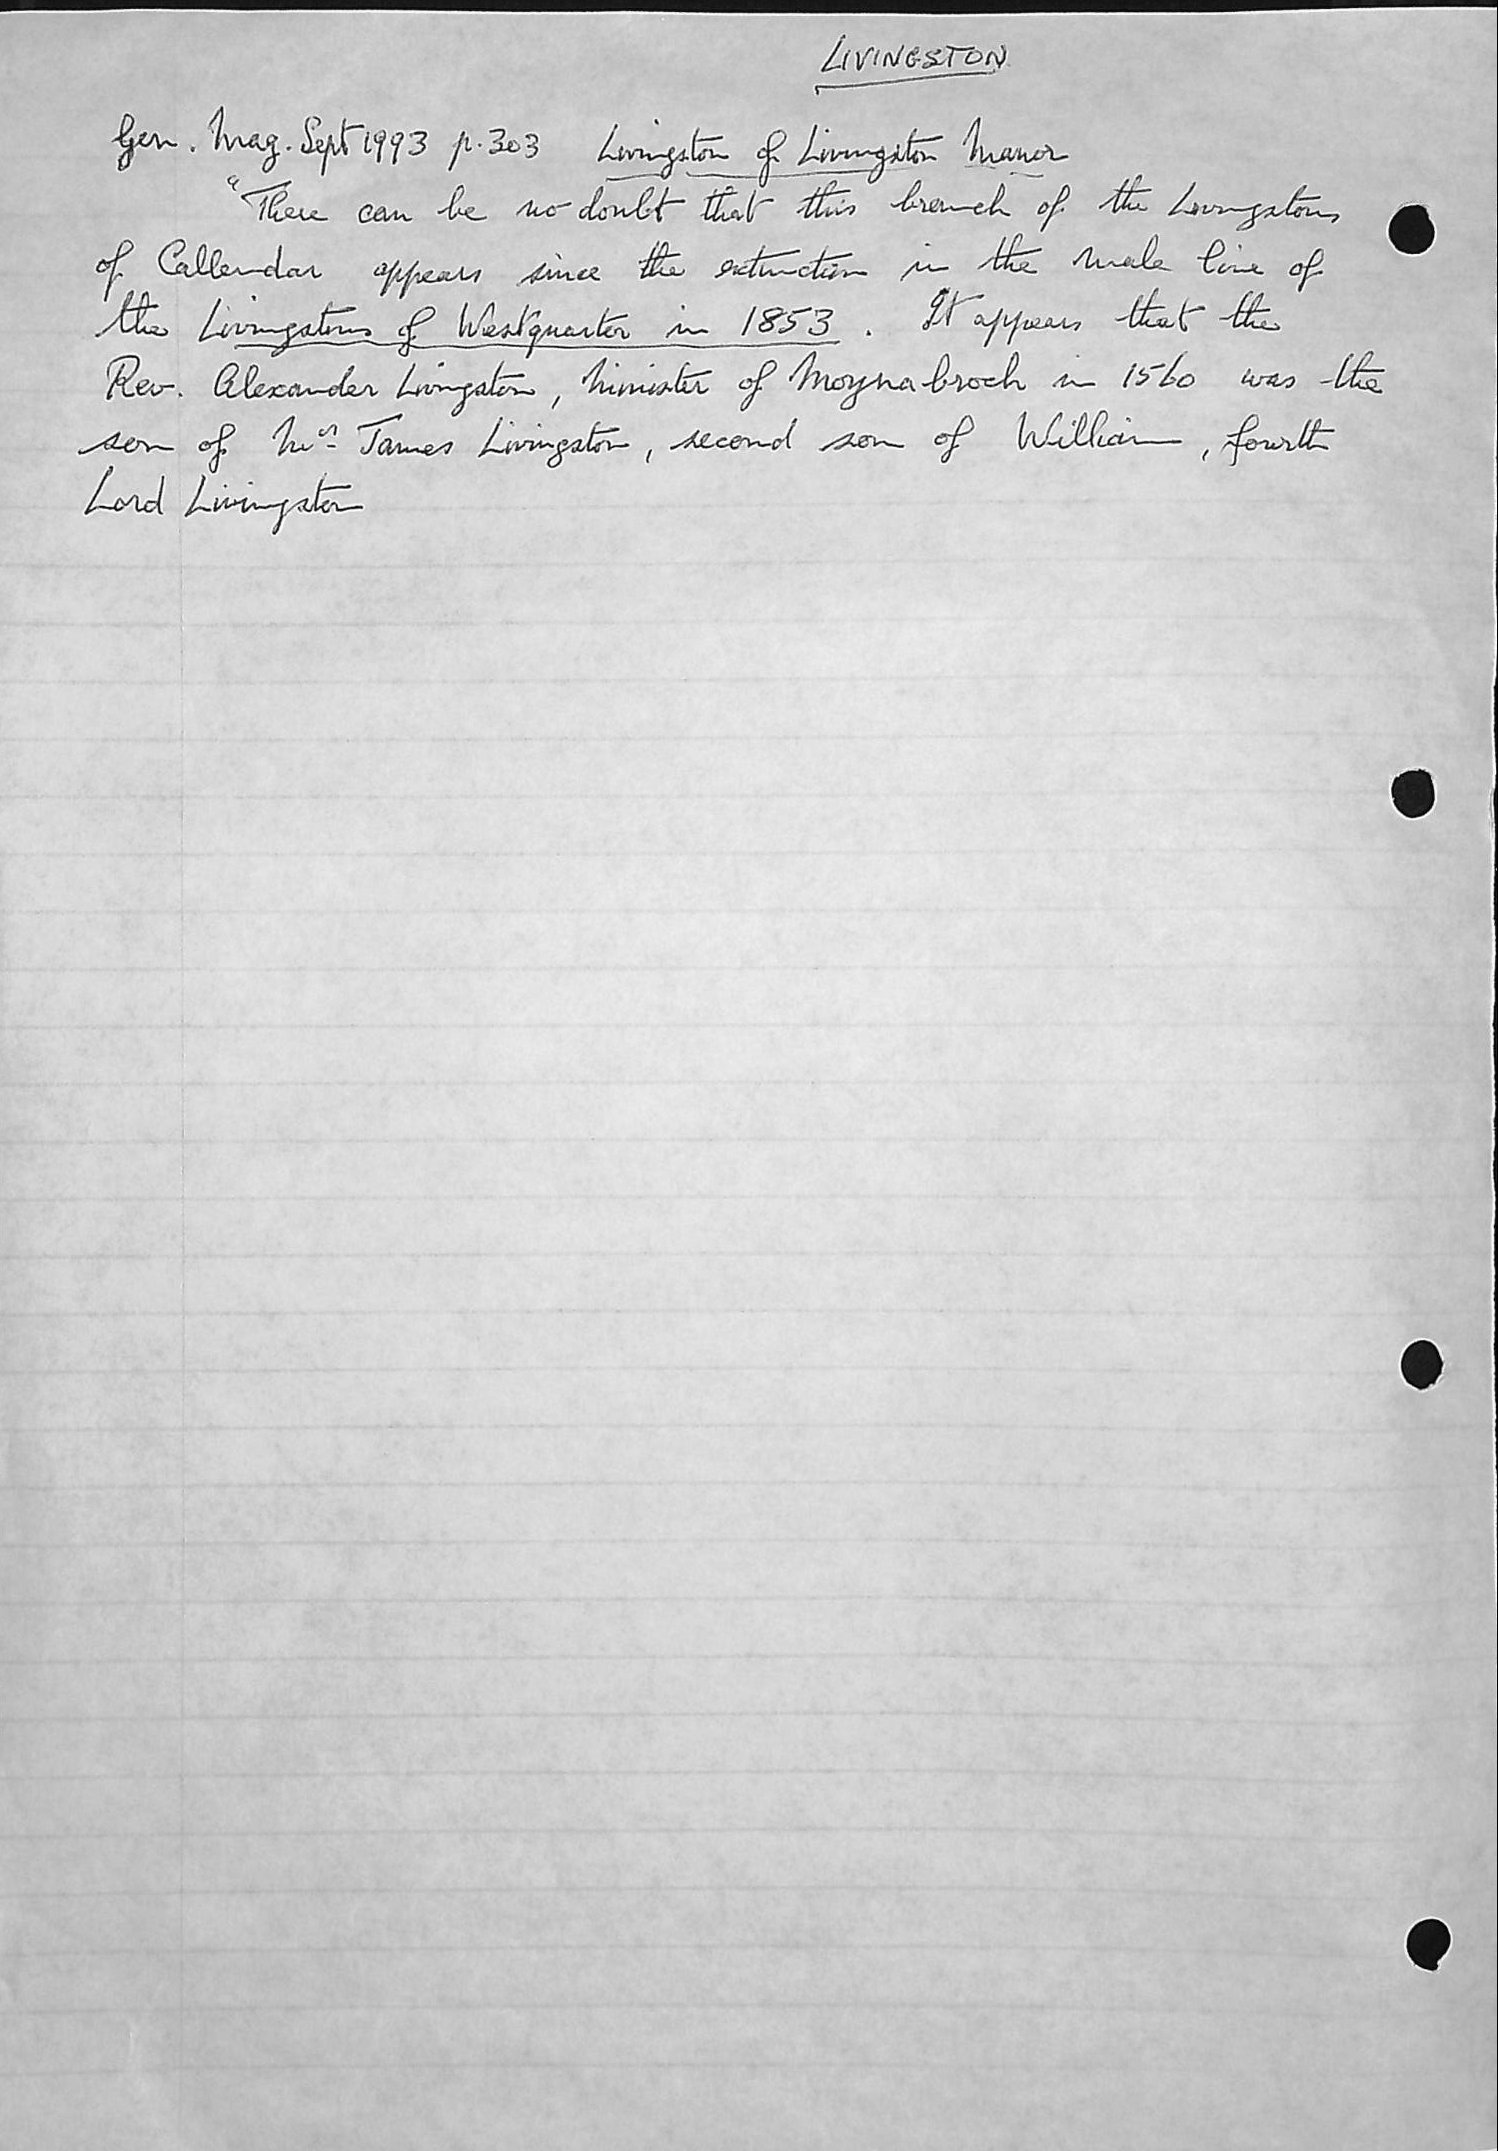 LIVINGSTON
Gen. Mag. Sept 1993 p. 303 Livingston of Livingston Manor
"There can be no doubt that this branch of the Livingstons
of Callendar appears since the extinction in the male line of
the Livingstons of Westquarter in 1853. It appears that the
Rev. Alexander Livingston, Minister of Moynabroch in 1560 was the
son of James Livingston, second son of William, fourth
Lord Livingston